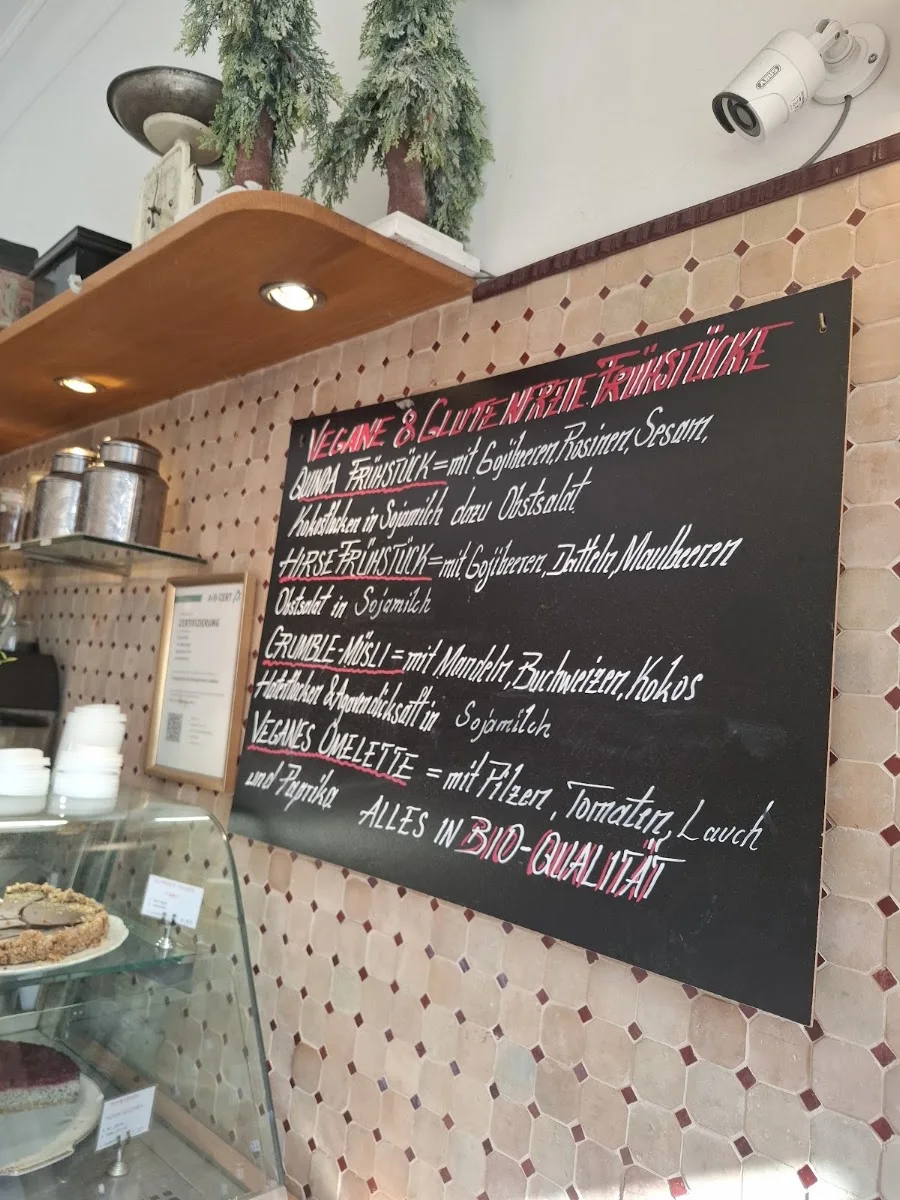 VEGANE & GLUTENFREIE FRÜHSTÜCKE
QUINOA FRÜHSTÜCK = mit Gojibeeren, Rosinen, Sesam,
Kokosflocken in Sojamilch dazu Obstsalat
HIRSE FRÜHSTÜCK = mit Gojibeeren, Datteln, Maulbeeren
Obstsalat in Sojamilch
CRUMBLE-MÜSLI = mit Mandeln, Buchweizen, Kokos
Haferflocken & Agavendicksaft in Sojamilch
VEGANES OMELETTE = mit Pilzen, Tomaten, Lauch
und Paprika
ALLES IN BIO-QUALITÄT
ABUS
CERT
ZERTIFIZIERUNG